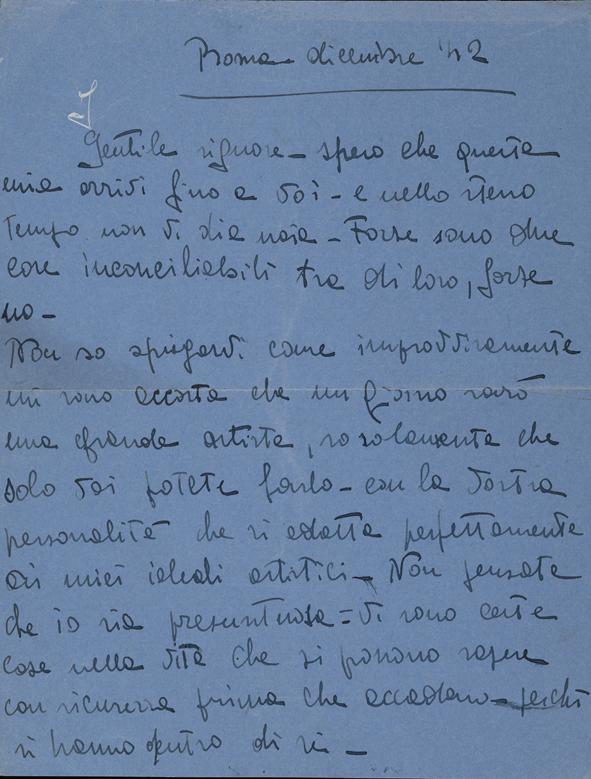 Roma dicembre '42
Gentile signore - spero che questa
mia arrivi fino a voi - e nello stesso
tempo non vi dia noia - Forse sono due
cose inconciliabili tra di loro, forse
no -
Non so spiegarvi come improvvisamente
mi sono accorta che un giorno sarò
una grande artista, so solamente che
solo voi potete farlo - con la vostra
personalità che si adatta perfettamente
ai miei ideali artistici - Non pensate
che io sia presuntuosa - Vi sono certe
cose nella vita che si possono sapere
con sicurezza prima che accadano - perchè
si hanno dentro di sè -